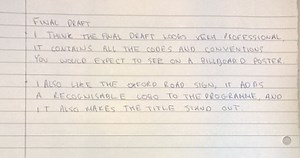 FINAL DRAFT
I THINK THE FINAL DRAFT LOOKS VERY PROFESSIONAL,
IT CONTAINS ALL THE CODES AND CONVENTIONS
YOU WOULD EXPECT TO SEE ON A BILLBOARD POSTER.
I ALSO LIKE THE OXFORD ROAD SIGN, IT ADDS
A RECOGNISABLE LOGO TO THE PROGRAMME, AND
IT ALSO MAKES THE TITLE STAND OUT.